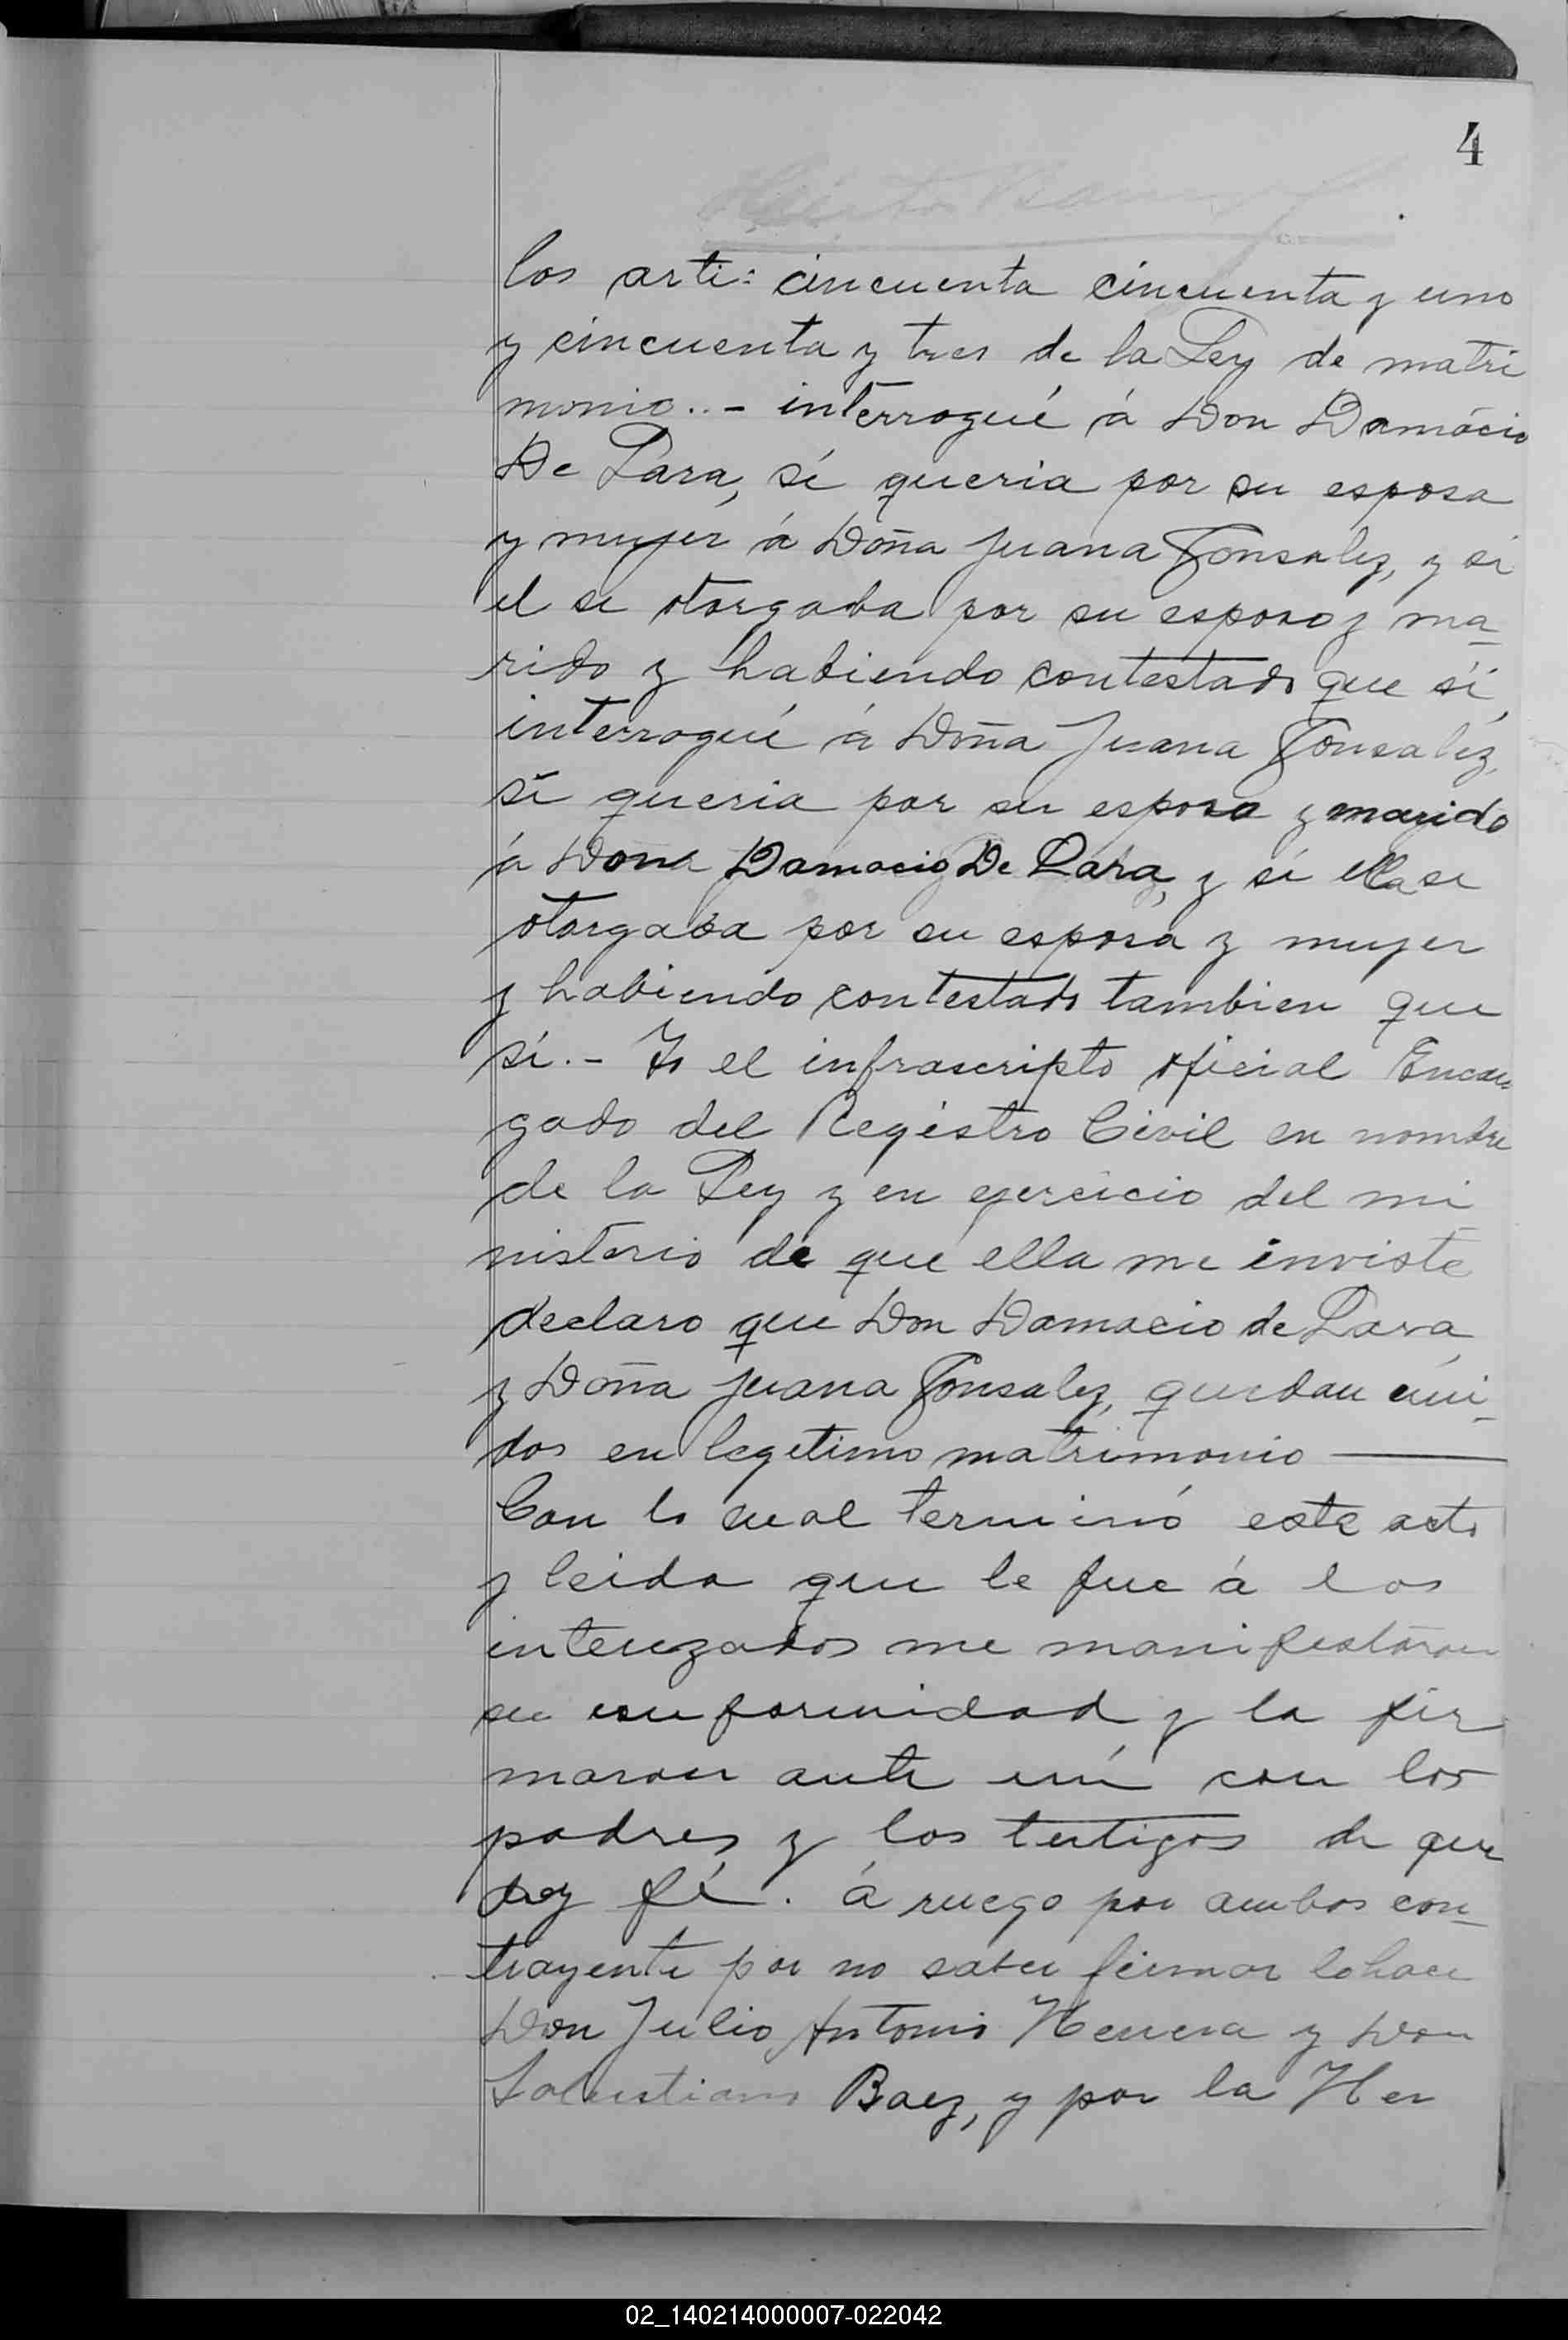 4
los arti: cincuenta cincuenta y uno
y cincuenta y tres de la Ley de matri
monio..- interrogué á Don Damácio
De Lara, sí queria por su esposa
y mujér á Doña Juana Gonsalez, y si
el se otorgaba por su esposo y ma-
rido y habiendo contestado que sí,
interrogué á Doña Juana Gonsalez,
si queria por su esposo y marido
á Dona Damacio De Lara, y sí ella se
otorgaba por su esposa y mujer
y habiendo contestado tambien que
sí.- Yo el infrascripto oficial Encar
gado del Registro Civil en nombre
de la Ley y en ejercicio del mi
nisterio de que ella me inviste
declaro que Don Damacio de Lara
y Doña Juana Gonsalez, quedan uni-
dos en legitimo matrimonio
Con lo cual terminó este acto
y leida que le fue á los
interezados me manifestáron
su conformidad y la fir
maron ante mí con los
padres y los testigos de que
doy fé. á ruego por ambos con-
trayente por no saber firmar lo hace
Don Julio Antonio Herrera y Don
Salustiano Baez, y por la Her
02_140214000007-022042